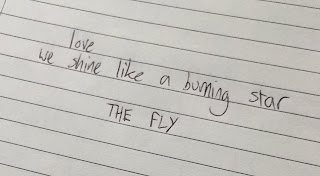 love
we shine like a burning star
THE FLY